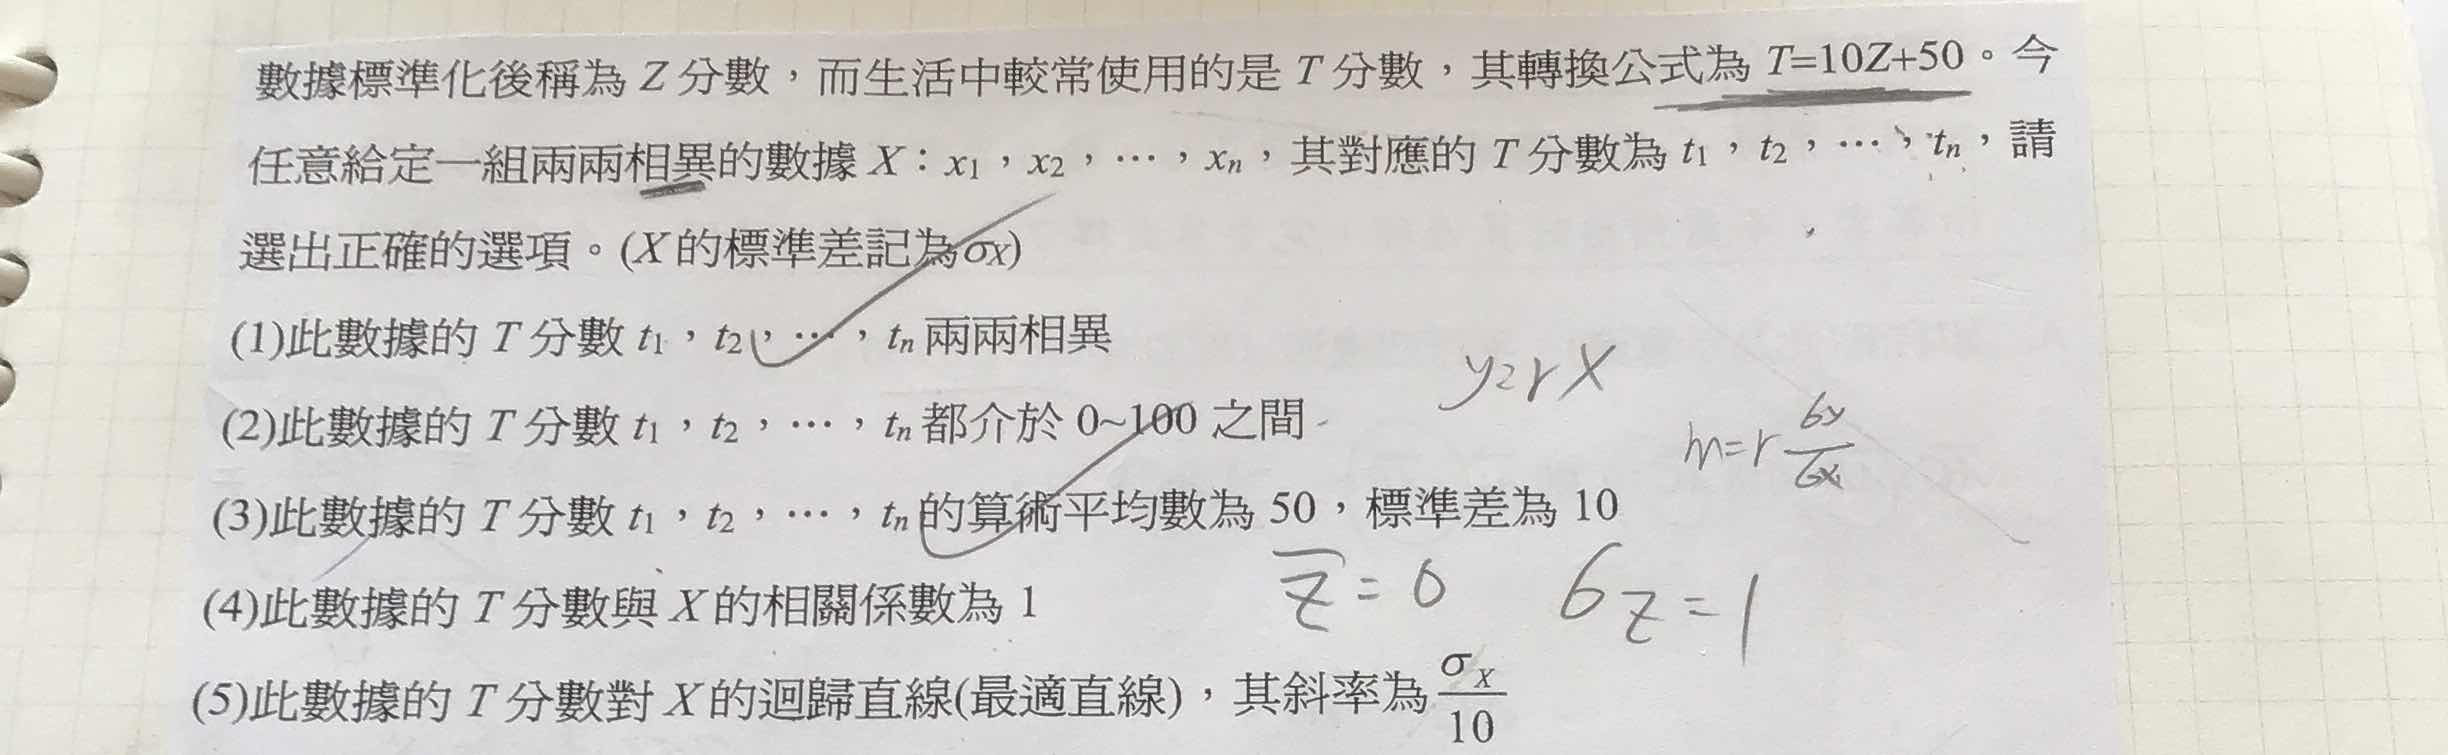 數據標準化後稱為 Z 分數，而生活中較常使用的是 T 分數，其轉換公式為 T=10Z+50。今
任意給定一組兩兩相異的數據 X：x₁，x₂，…，xₙ，其對應的 T 分數為 t₁，t₂，…，tₙ，請
選出正確的選項。(X 的標準差記為σX)
(1)此數據的 T 分數 t₁，t₂，…，tₙ 兩兩相異
(2)此數據的 T 分數 t₁，t₂，…，tₙ 都介於 0~100 之間
(3)此數據的 T 分數 t₁，t₂，…，tₙ 的算術平均數為 50，標準差為 10
(4)此數據的 T 分數與 X 的相關係數為 1
(5)此數據的 T 分數對 X 的迴歸直線(最適直線)，其斜率為 σX/10
y=rX
m=r σy/σx
z̅=0 σz=1